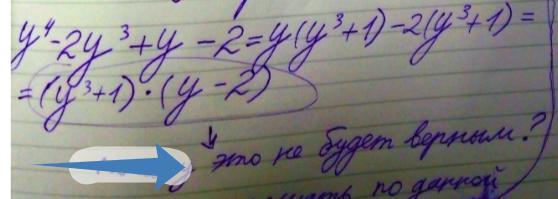 y⁴-2y³+y-2=y(y³+1)-2(y³+1)=
=(y³+1)·(y-2)
это не будет верным?
по данной